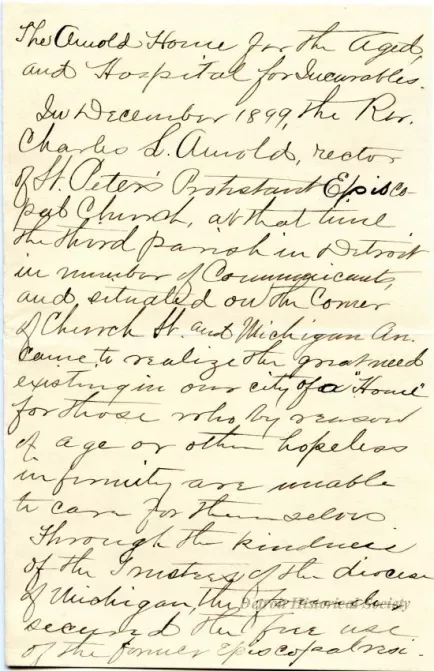 The Arnold Home for the Aged,
and Hospital for Incurables.
In December 1899, the Rev.
Charles L. Arnold, rector
of St. Peter's Protestant Episco-
pal Church, at that time
the third parish in Detroit
in number of Communicants,
and, situated on the Corner
of Church St. and Michigan Av.
came to realize the great need
existing in our city of a "Home"
for those who, by reason
of age or other hopeless
infirmity are unable
to care for themselves
Through the kindness
of the Trustees of the diocese
of Michigan, the
Detroit Historical Society
secured the free use
of the former Episcopal resi-